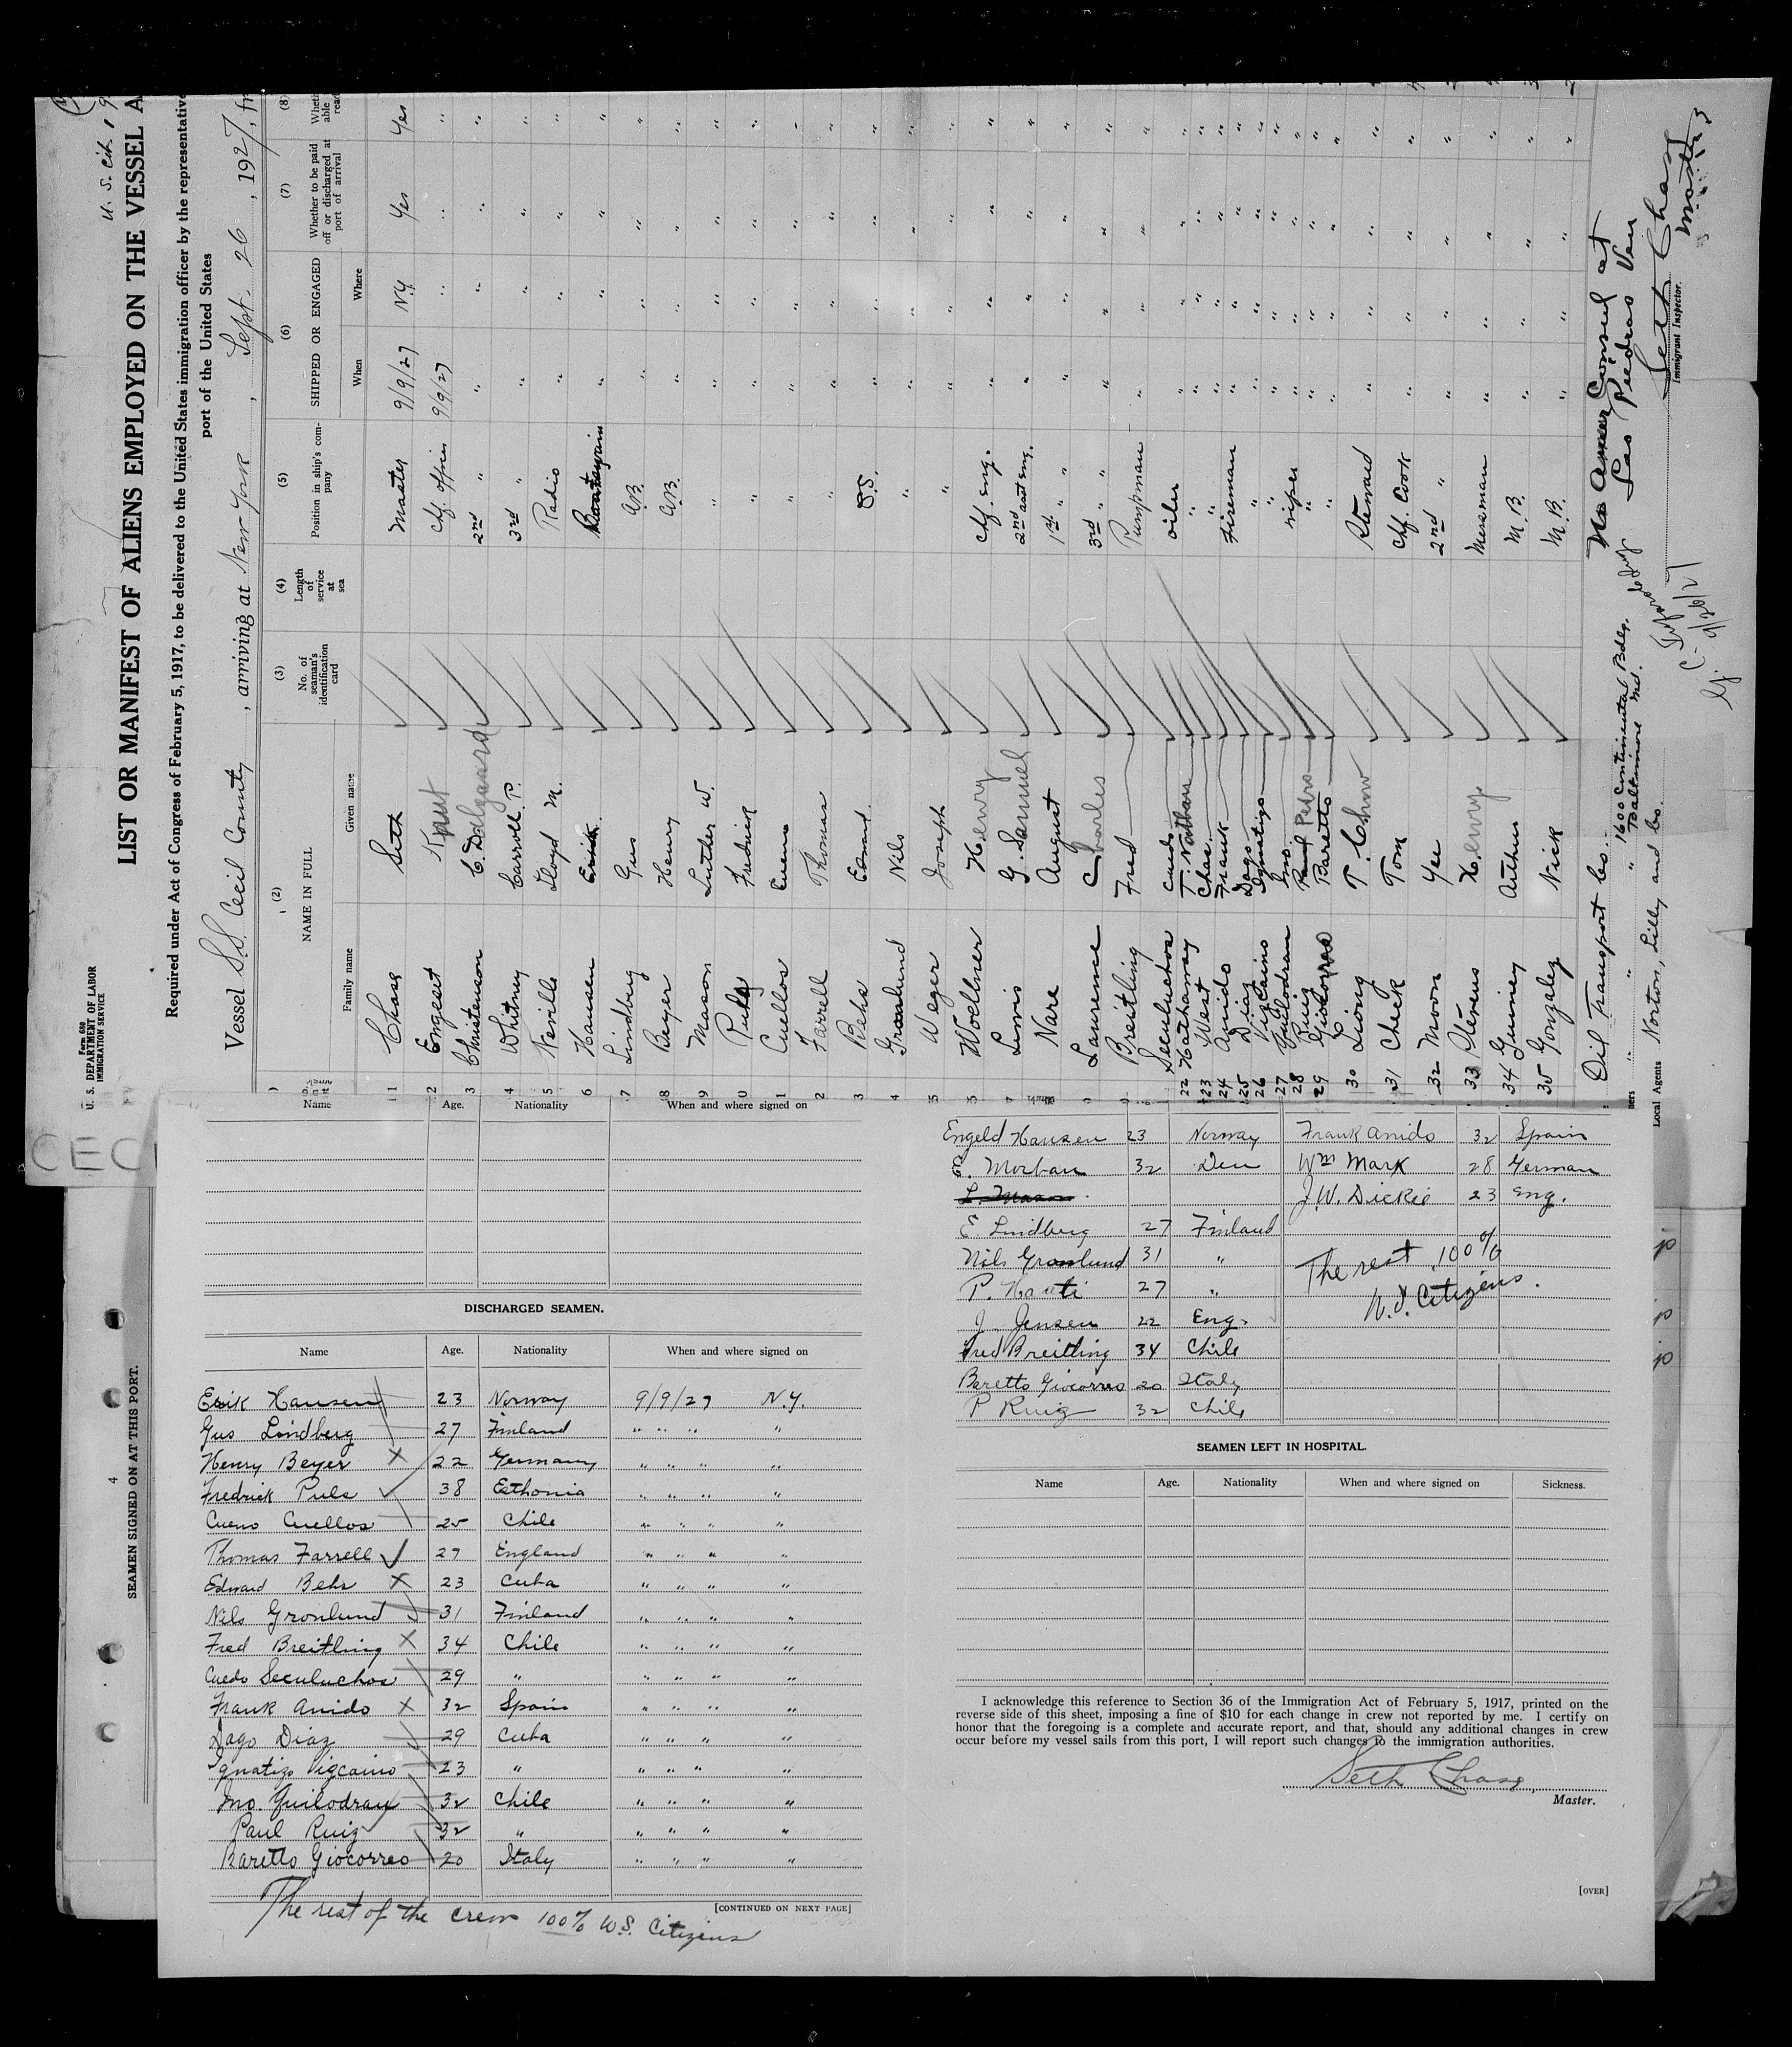 U. S. cit.
Form 680
U. S. DEPARTMENT OF LABOR
IMMIGRATION SERVICE
LIST OR MANIFEST OF ALIENS EMPLOYED ON THE VESSEL A
Required under Act of Congress of February 5, 1917, to be delivered to the United States immigration officer by the representative
port of the United States
Vessel S.S. Cecil County, arriving at New York, Sept. 26, 1927, fr
(2) (3) (4) (5) (6) (7) (8)
NAME IN FULL
Family name Given name
No. of seaman's identification card
Length of service at sea
Position in ship's company
SHIPPED OR ENGAGED
When Where
Whether to be paid off or discharged at port of arrival
Chase Seth Master 9/9/27 N.Y. Yes Yes
2 Engeset Knut Chf. Officer 9/9/27 " " "
3 Christenson C. Dalgaard 2nd " " " " "
4 Whitney Carroll P. 3rd " " " " "
5 Neville Lloyd M. Radio " " " "
6 Hansen Erick Boatswain " " " "
7 Lindberg Gus A.B. " " " "
8 Beyer Henry A.B. " " " "
9 Mason Luther W. " " " " "
0 Puls Fredrick " " " " "
1 Cuellos Cueno " " " " "
2 Farrell Thomas " " " " "
3 Behr Edward O.S. " " " "
4 Gronlund Nils " " " " "
5 Weger Joseph " " " " "
Woellner Henry Chf. Eng. " " " "
Lewis G. Samuel 2nd asst Eng. " " " "
Nare August 1st " " " " " "
Laurence Charles 3rd " " " " " "
Breitling Fred Pumpman " " " "
Seculuchos Cuedo Oiler " " " "
22 Hathaway T. Nathan " " " " "
23 West Chas. " " " " "
24 Anido Frank Fireman " " " "
25 Diaz Dago " " " " "
26 Vigcaino Ignatizo " " " " "
27 Guilodran Jno. Wiper " " " "
28 Ruiz Paul Pedro " " " " "
29 Giocorreo Baretto " " " " "
30 Liong T. Chow Steward " " " "
31 Cheek Tom Chf. Cook " " " "
32 Moon Yee 2nd " " " " "
33 Stevens Henry Messman " " " "
34 Guiney Arthur M.B. " " " "
35 Gonzalez Nick M.B. " " " "
Oil Transport Co.
" " 1600 Continental Bldg.
Baltimore Md.
Local Agents Norton, Lilly and Co.
No Amer Consul at
Las Piedras Ven
Seth Chase
Master
Immigrant Inspector.
9/26/27
CEC
4
SEAMEN SIGNED ON AT THIS PORT.
Name Age. Nationality When and where signed on
DISCHARGED SEAMEN.
Name Age. Nationality When and where signed on
Erik Hansen 23 Norway 9/9/27 N.Y.
Gus Lindberg 27 Finland " " " "
Henry Beyer 22 Germany " " " "
Fredrick Puls 38 Esthonia " " " "
Cueno Cuellos 25 Chile " " " "
Thomas Farrell 27 England " " " "
Edward Behr 23 Cuba " " " "
Nils Gronlund 31 Finland " " " "
Fred Breitling 34 Chile " " " "
Cuedo Seculuchos 29 " " " " "
Frank Anido 32 Spain " " " "
Dago Diaz 29 Cuba " " " "
Ignatizo Vigcaino 23 " " " " "
Jno. Guilodran 32 Chile " " " "
Paul Ruiz 32 " " " " "
Baretto Giocorreo 20 Italy " " " "
[CONTINUED ON NEXT PAGE]
The rest of the crew 100% U.S. Citizens
Engeld Hansen 23 Norway Frank Anido 32 Spain
E. Morban 32 Den Wm Mark 28 German
L. Mason J.W. Dickie 23 Eng.
E. Lindberg 27 Finland
Nils Gronlund 31 "
P. Hauti 27 "
J. Jensen 22 Eng.
Fred Breitling 34 Chile
Baretto Giocorreo 20 Italy
P Ruiz 32 Chile
The rest 100%
U.S. Citizens.
SEAMEN LEFT IN HOSPITAL.
Name Age. Nationality When and where signed on Sickness.
I acknowledge this reference to Section 36 of the Immigration Act of February 5, 1917, printed on the
reverse side of this sheet, imposing a fine of $10 for each change in crew not reported by me. I certify on
honor that the foregoing is a complete and accurate report, and that, should any additional changes in crew
occur before my vessel sails from this port, I will report such changes to the immigration authorities.
Seth Chase,
Master.
[OVER]